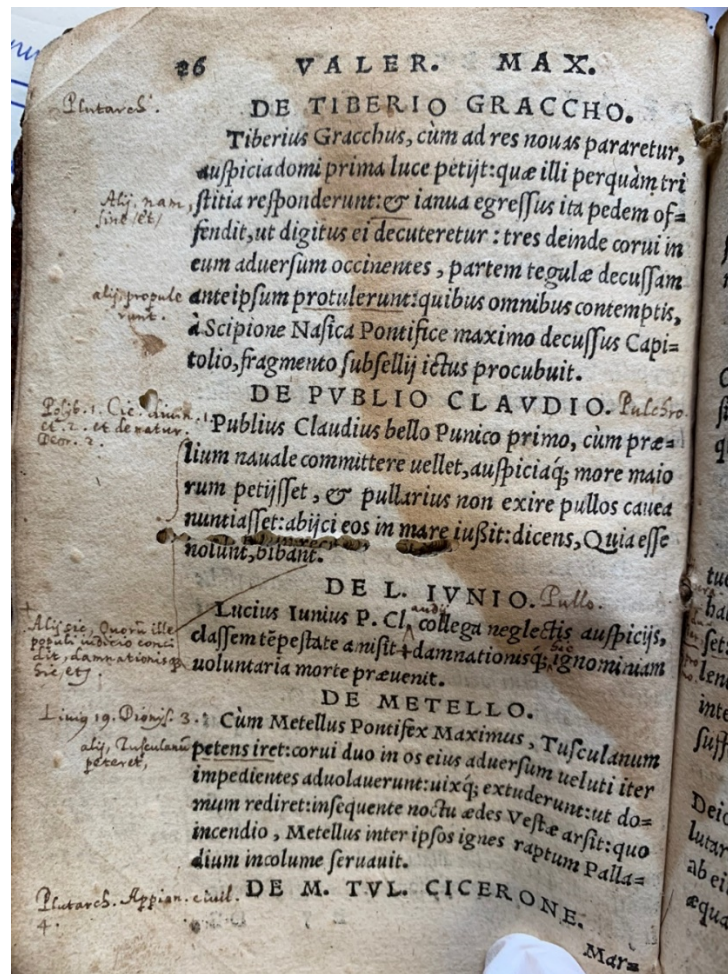 26 VALER. MAX.
Plutarch.
DE TIBERIO GRACCHO.
Tiberius Gracchus, cùm ad res nouas pararetur,
auspicia domi prima luce petijt: quæ illi perquàm tri
Alij, nam,
sine /et/
stitia responderunt: & ianua egressus ita pedem of=
fendit, ut digitus ei decuteretur: tres deinde corui in
eum aduersum occinentes, partem tegulæ decussam
alij, propule
runt.
ante ipsum protulerunt: quibus omnibus contemptis,
à Scipione Nasica Pontifice maximo decussus Capi=
tolio, fragmento subsellij ictus procubuit.
DE PVBLIO CLAVDIO. Pulchro.
Polyb. 1. Cic. diuin.
et. 2. et de natur.
Deor. 2.
Publius Claudius bello Punico primo, cùm præ=
lium nauale committere uellet, auspiciaq́; more maio
rum petijsset, & pullarius non exire pullos cauea
nuntiasset: abijci eos in mare iußit: dicens, Quia esse
nolunt, bibant.
DE L. IVNIO. Pullo.
Lucius Iunius P. Cl audij collega neglectis auspicijs,
+
Alij sic, Quorū ille
populi iudicio conci
dit, damnationis
classem tēpestate amisit + damnationisq́; hic ignominiam
uoluntaria morte præuenit.
DE METELLO.
Liuius 19. Dionys. 3.
Cùm Metellus Pontifex Maximus, Tusculanum
alij, Tusculanū
peteret,
petens iret: corui duo in os eius aduersum ueluti iter
impedientes aduolauerunt: uixq́; extuderunt: ut do=
mum rediret: insequente noctu ædes Vestæ arsit: quo
incendio, Metellus inter ipsos ignes raptum Palla=
dium incolume seruauit.
Plutarch. Appian. ciuil.
4.
DE M. TVL. CICERONE.
Mar=